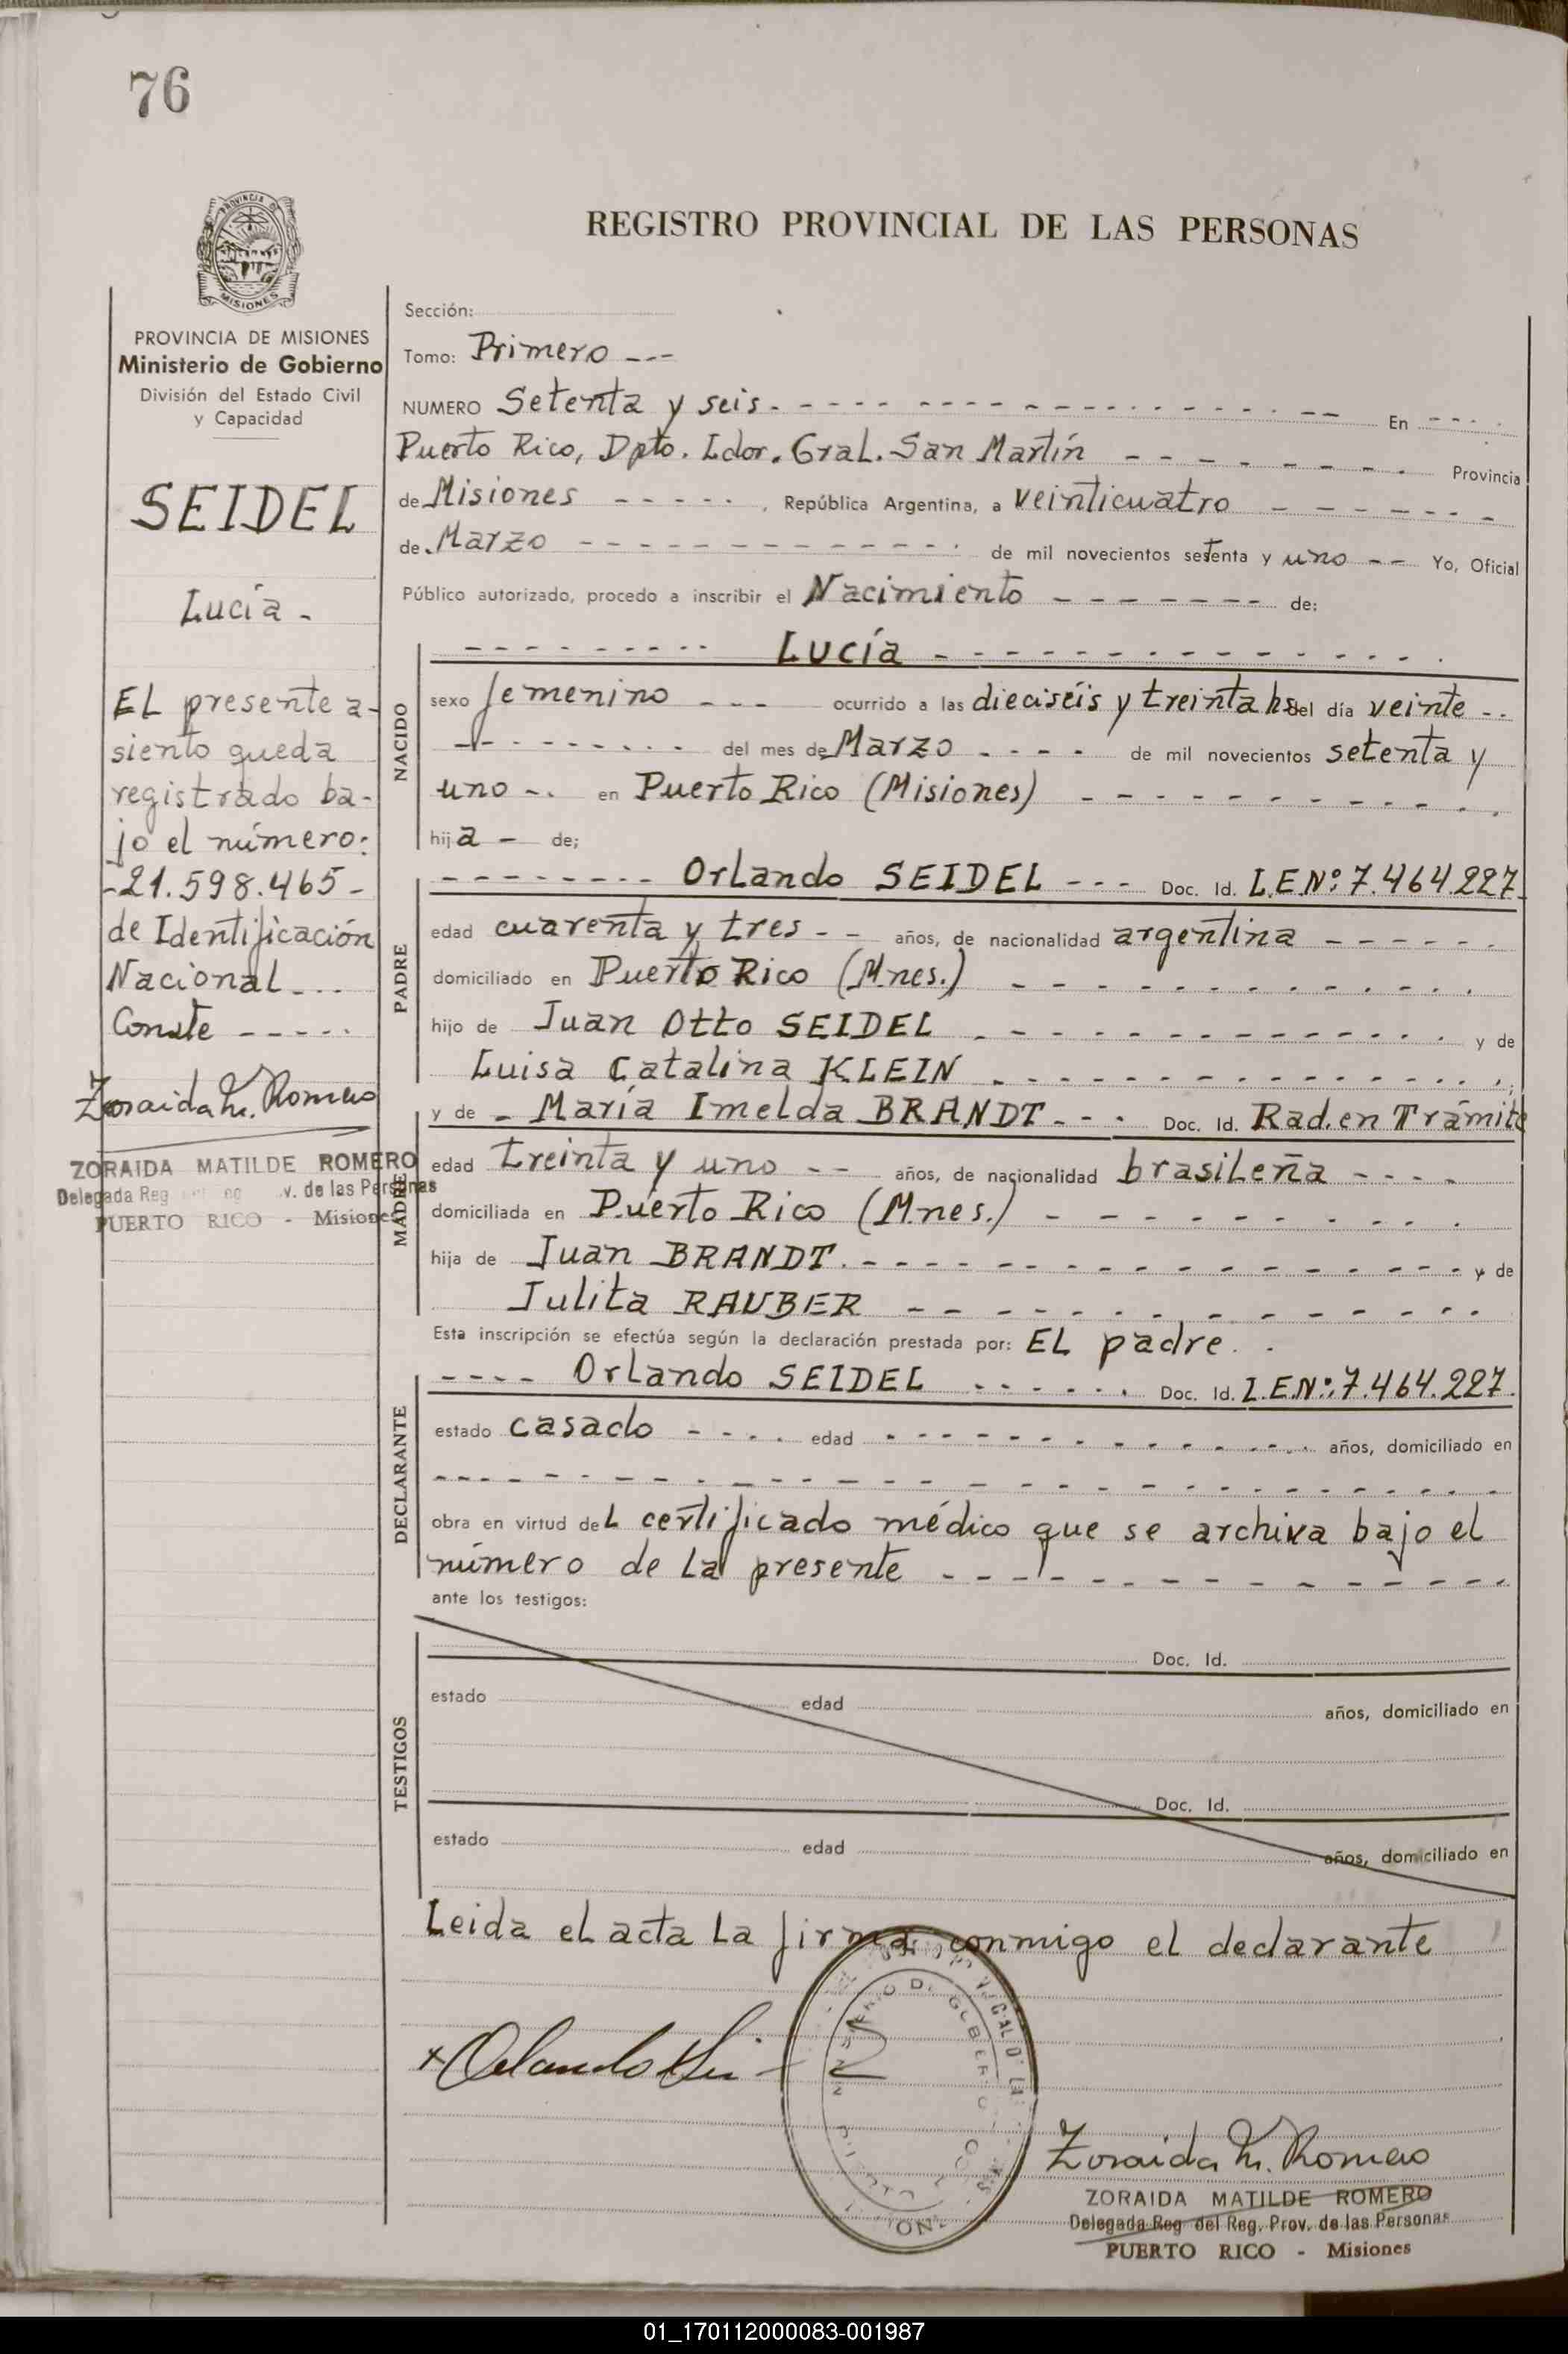 76
PROVINCIA DE
MISIONES
PROVINCIA DE MISIONES
Ministerio de Gobierno
División del Estado Civil
y Capacidad
SEIDEL
Lucía -
EL presente a-
siento queda
registrado ba-
jo el número:
-21.598.465-
de Identificación
Nacional - - -
Conste - - - - -
Zoraida M. Romero
ZORAIDA MATILDE ROMERO
Delegada Reg v. de las Personas
PUERTO RICO - Misiones
REGISTRO PROVINCIAL DE LAS PERSONAS
Sección:
Tomo: Primero ---
NUMERO Setenta y seis. - - - - En - - - -
Puerto Rico, Dpto. Ldor. Gral. San Martín - - - - Provincia
de Misiones - - - - -, República Argentina, a veinticuatro - - - -
de Marzo - - - - de mil novecientos setenta y uno -- Yo, Oficial
Público autorizado, procedo a inscribir el Nacimiento - - - - de:
NACIDO
- - - - Lucía - - - -
sexo femenino - - - ocurrido a las dieciséis y treinta hs del día veinte --
- - - - del mes de Marzo - - - - de mil novecientos setenta y
uno -. en Puerto Rico (Misiones) - - - -
hija - de;
PADRE
- - - - Orlando SEIDEL - - - Doc. Id. L.E.Nº: 7.464.227-
edad cuarenta y tres - - años, de nacionalidad argentina - - - -
domiciliado en Puerto Rico (Mnes.) - - - -
hijo de Juan Otto SEIDEL - - - - y de
Luisa Catalina KLEIN - - - -
MADRE
y de - María Imelda BRANDT - - - Doc. Id. Rad. en Trámite
edad treinta y uno - - años, de nacionalidad brasileña - - - -
domiciliada en Puerto Rico (Mnes.) - - - -
hija de Juan BRANDT. - - - - y de
Julita RAUBER - - - -
Esta inscripción se efectúa según la declaración prestada por: EL padre. -
DECLARANTE
- - - - Orlando SEIDEL - - - - Doc. Id. L.E.Nº: 7.464.227.
estado casado - - - - edad - - - - años, domiciliado en
- - - -
obra en virtud del certificado médico que se archiva bajo el
número de la presente - - - -
ante los testigos:
TESTIGOS
Doc. Id.
estado edad años, domiciliado en
Doc. Id.
estado edad años, domiciliado en
Leida el acta la firma conmigo el declarante
x Orlando
Zoraida M. Romero
ZORAIDA MATILDE ROMERO
Delegada Reg del Reg. Prov. de las Personas
PUERTO RICO - Misiones
01_170112000083-001987